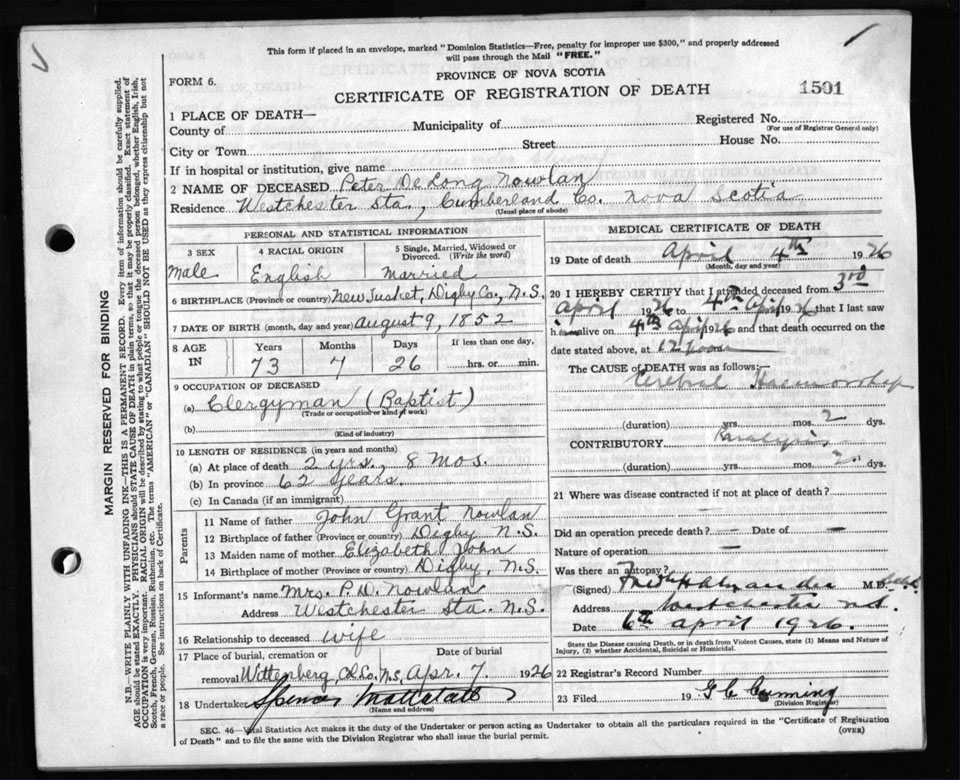 This form if placed in an envelope, marked "Dominion Statistics—Free, penalty for improper use $300," and properly addressed
will pass through the Mail "FREE."
FORM 6.
PROVINCE OF NOVA SCOTIA
CERTIFICATE OF REGISTRATION OF DEATH
1501
1 PLACE OF DEATH—
County of Municipality of Registered No.
(For use of Registrar General only)
City or Town Street House No.
If in hospital or institution, give name
2 NAME OF DECEASED Peter De Long Nowlan
Residence Westchester Sta, Cumberland Co. Nova Scotia
(Usual place of abode)
PERSONAL AND STATISTICAL INFORMATION
3 SEX 4 RACIAL ORIGIN 5 Single, Married, Widowed or
Divorced. (Write the word)
Male English Married
6 BIRTHPLACE (Province or country) New Tusket, Digby Co., N.S.
7 DATE OF BIRTH (month, day and year) August 9, 1852
8 AGE IN Years Months Days If less than one day,
73 7 26 hrs. or min.
9 OCCUPATION OF DECEASED
(a) Clergyman (Baptist)
(Trade or occupation or kind of work)
(b)
(Kind of industry)
10 LENGTH OF RESIDENCE (in years and months)
(a) At place of death 2 yrs., 8 mos.
(b) In province 62 years.
(c) In Canada (if an immigrant)
Parents
11 Name of father John Grant Nowlan
12 Birthplace of father (Province or country) Digby N.S.
13 Maiden name of mother Elizabeth John
14 Birthplace of mother (Province or country) Digby, N.S.
15 Informant's name Mrs. P.D. Nowlan
Address Westchester Sta. N.S.
16 Relationship to deceased wife
17 Place of burial, cremation or Date of burial
removal Wittenberg, Col Co. N.S, Apr. 7 1926
18 Undertaker Spencer Mattatall
(Name and address)
MEDICAL CERTIFICATE OF DEATH
19 Date of death April 4th 1926
(Month, day and year)
20 I HEREBY CERTIFY that I attended deceased from 3rd
April 1926 to 4th April 1926 that I last saw
him alive on 4th April 1926 and that death occurred on the
date stated above, at 12 noon
The CAUSE OF DEATH was as follows:—
Cerebral Haemorrhage
(duration) yrs. mos. 2 dys.
CONTRIBUTORY Paralysis
(duration) yrs. mos. 2 dys.
21 Where was disease contracted if not at place of death?
Did an operation precede death? — Date of —
Nature of operation —
Was there an autopsy?
(Signed) M.D.
Address Westchester N.S.
Date 6th April 1926.
State the Disease causing Death, or in death from Violent Causes, state (1) Means and Nature of
Injury, (2) whether Accidental, Suicidal or Homicidal.
22 Registrar's Record Number
23 Filed 19 G C Cumming
(Division Registrar)
SEC. 46—Vital Statistics Act makes it the duty of the Undertaker or person acting as Undertaker to obtain all the particulars required in the "Certificate of Registration
of Death" and to file the same with the Division Registrar who shall issue the burial permit.
(OVER)
MARGIN RESERVED FOR BINDING
N.B.—WRITE PLAINLY WITH UNFADING INK—THIS IS A PERMANENT RECORD. Every item of information should be carefully supplied.
AGE should be stated EXACTLY. PHYSICIANS should STATE CAUSE OF DEATH in plain terms, so that it may be properly classified. Exact statement of
OCCUPATION is very important. RACIAL ORIGIN will be described by stating to what people or tongue the deceased person belonged, whether English, Irish,
Scotch, French, German, Russian, Ruthenian, etc. The terms "AMERICAN" or "CANADIAN" SHOULD NOT BE USED as they express citizenship but not
a race or people. See instructions on back of Certificate.